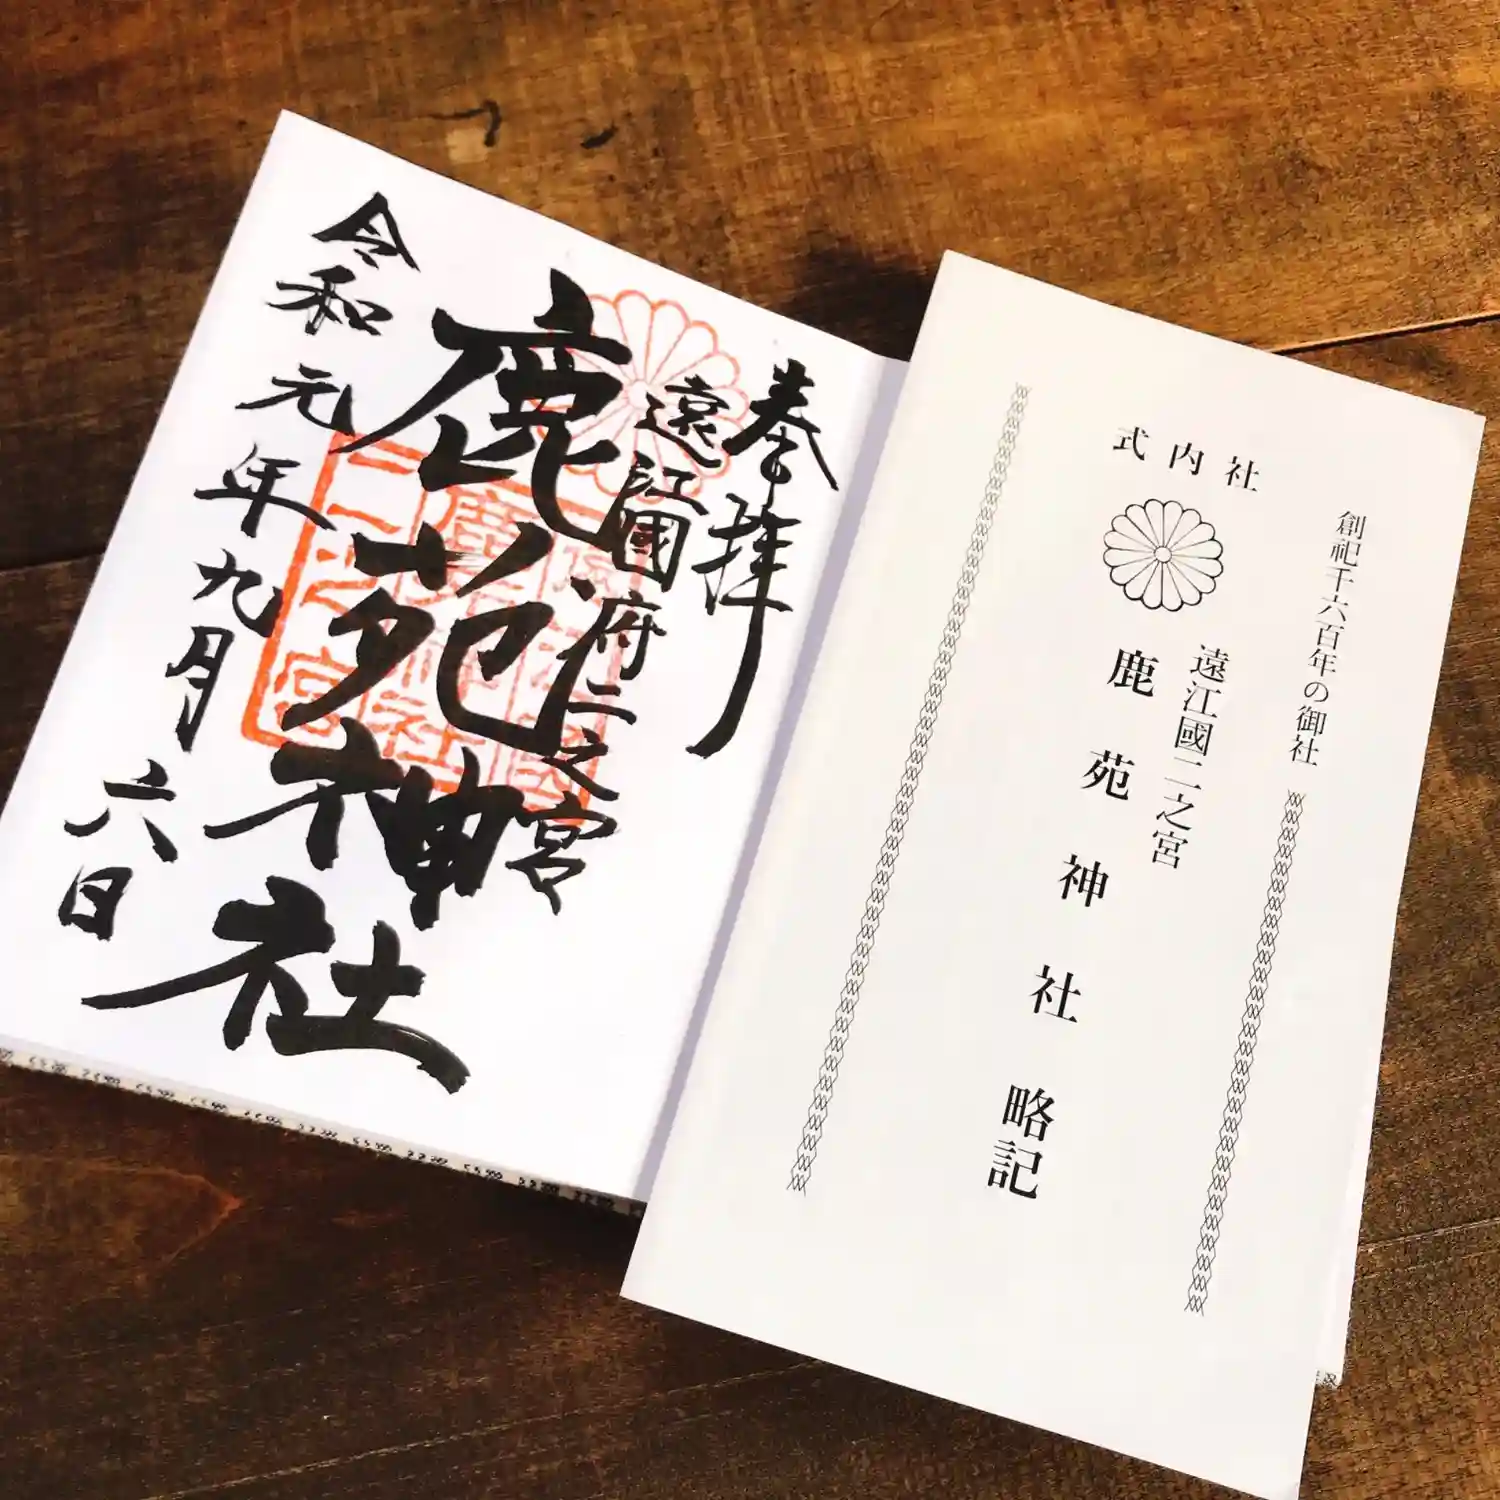 奉拝
遠江國府二之宮
鹿苑神社
令和元年九月六日
二之宮
鹿苑神社
遠江國
創祀千六百年の御社
式内社
遠江國二之宮
鹿苑神社略記